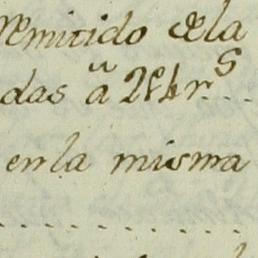 remitido de la
das a 24 r.s
en la misma